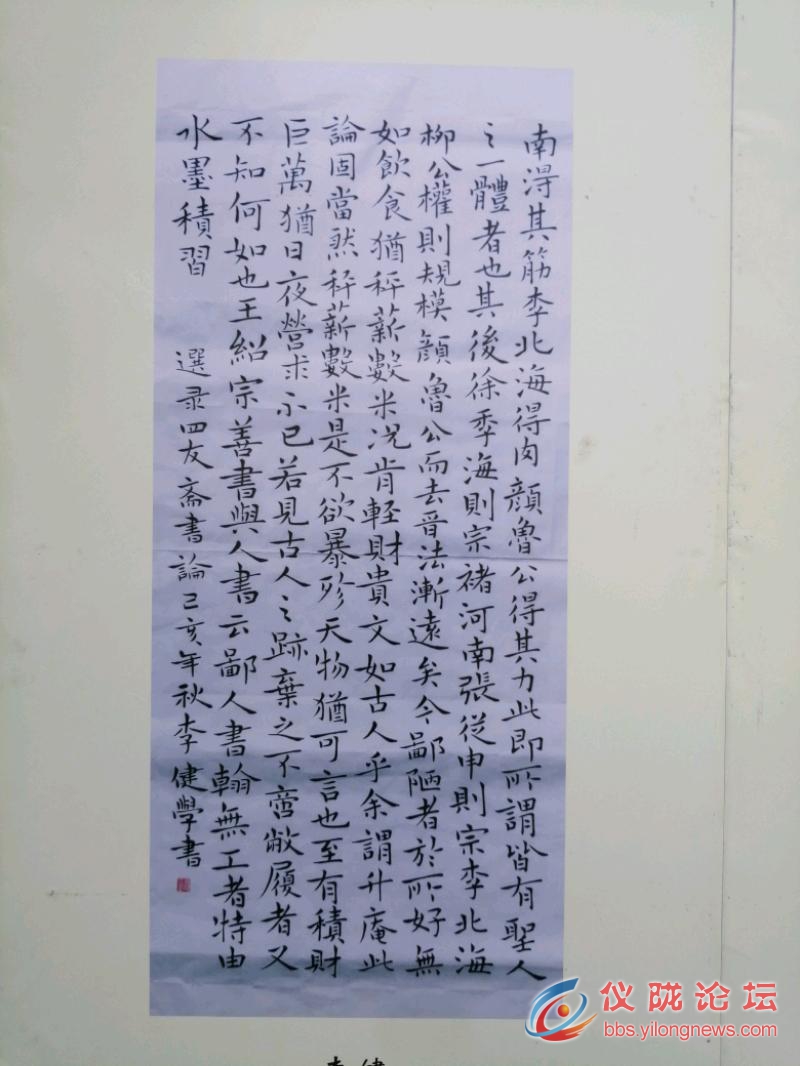 南淂其筋李北海得肉顔魯公得其力此即所謂皆有聖人
之一體者也其後徐季海則宗褚河南張從申則宗李北海
柳公權則規模顔魯公而去晉法漸遠矣今鄙陋者於所好無
如飲食猶秤薪數米况肯輕財貴文如古人乎余謂升庵此
論固當然秤薪數米是不欲暴殄天物猶可言也至有積財
巨萬猶日夜營求不已若見古人之跡棄之不啻敝履者又
不知何如也王紹宗善書與人書云鄙人書翰無工者特由
水墨積習
選录四友斋書論己亥年秋李健學書
仪陇论坛
bbs.yilongnews.com